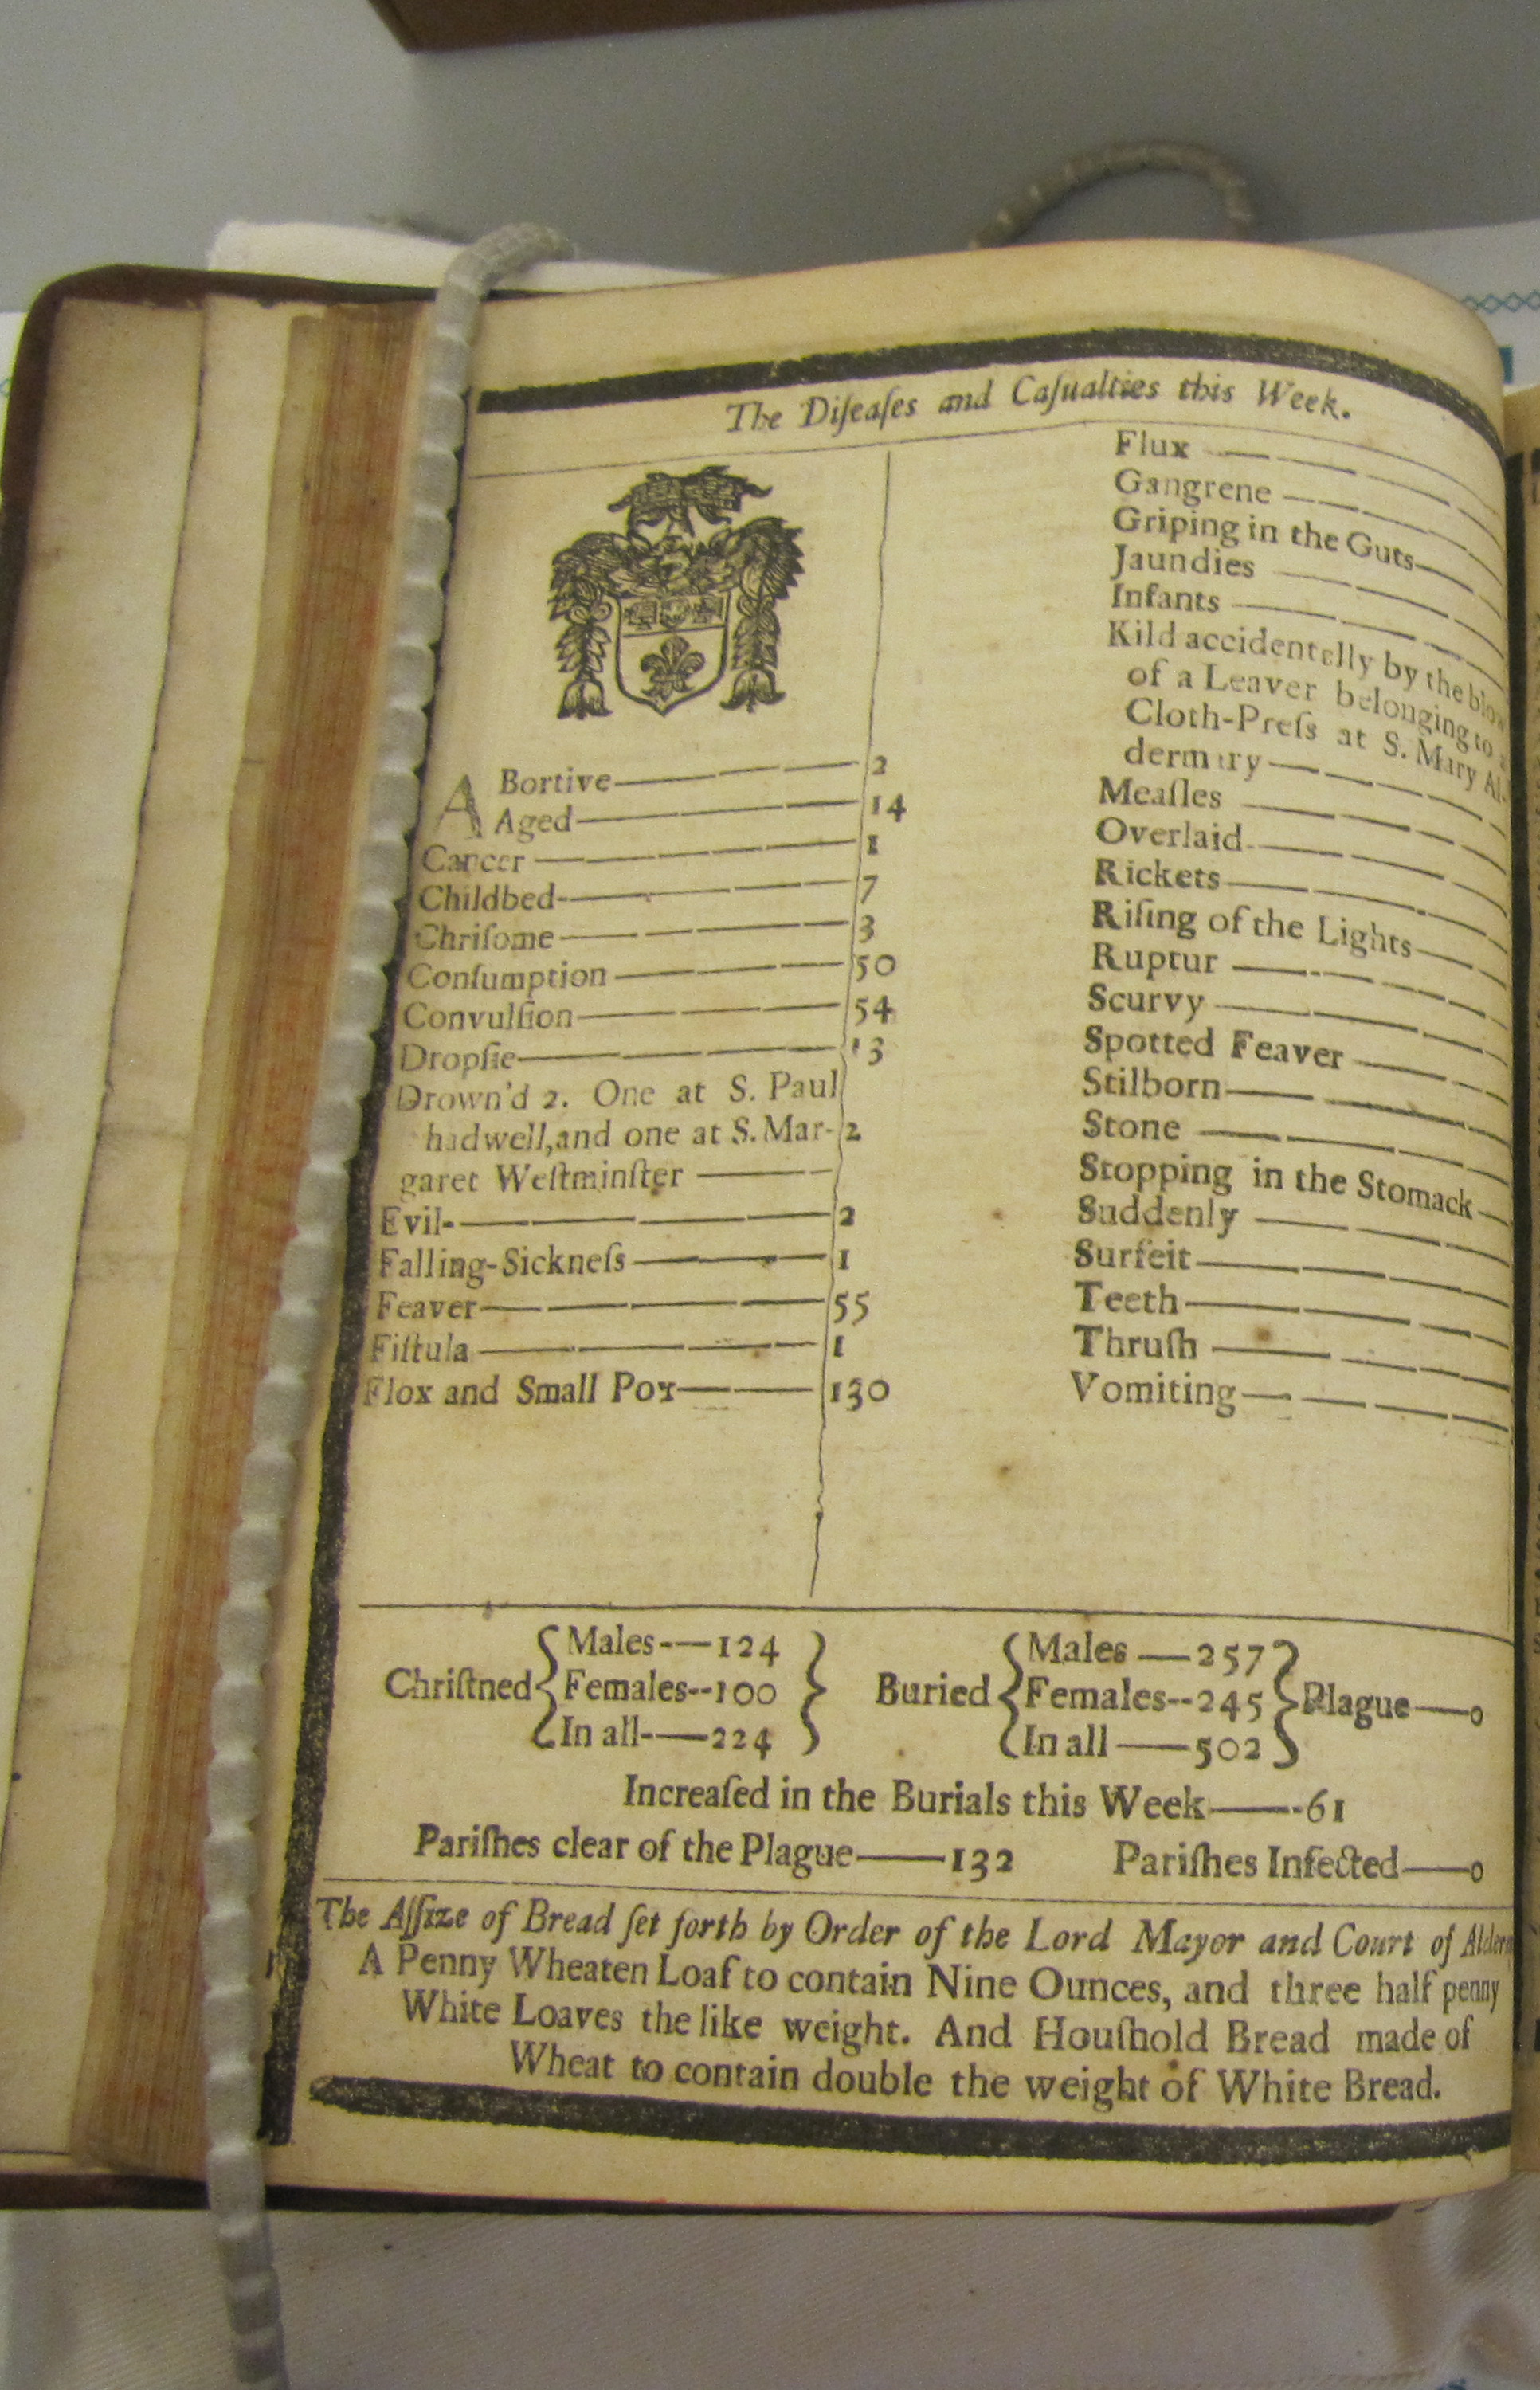 The Diſeaſes and Caſualties this Week.
ABortive 2
Aged 14
Cancer 1
Childbed 7
Chriſome 3
Conſumption 50
Convulſion 54
Dropſie 13
Drown'd 2. One at S. Paul
hadwell, and one at S. Mar- 2
garet Weſtminſter
Evil 2
Falling-Sickneſs 1
Feaver 55
Fiſtula 1
Flox and Small Pox 130
Flux
Gangrene
Griping in the Guts
Jaundies
Infants
Kild accidentally by the blow
of a Leaver belonging to a
Cloth-Preſs at S. Mary Al-
dermary
Meaſles
Overlaid
Rickets
Riſing of the Lights
Ruptur
Scurvy
Spotted Feaver
Stilborn
Stone
Stopping in the Stomack
Suddenly
Surfeit
Teeth
Thruſh
Vomiting
Chriſtned { Males---124
Females--100
In all---224 }
Buried { Males —257
Females--245
In all —502 } Plague—0
Increaſed in the Burials this Week——61
Pariſhes clear of the Plague——132 Pariſhes Infected——0
The Aſſize of Bread ſet forth by Order of the Lord Mayor and Court of
A Penny Wheaten Loaf to contain Nine Ounces, and three half penny
White Loaves the like weight. And Houſhold Bread made of
Wheat to contain double the weight of White Bread.